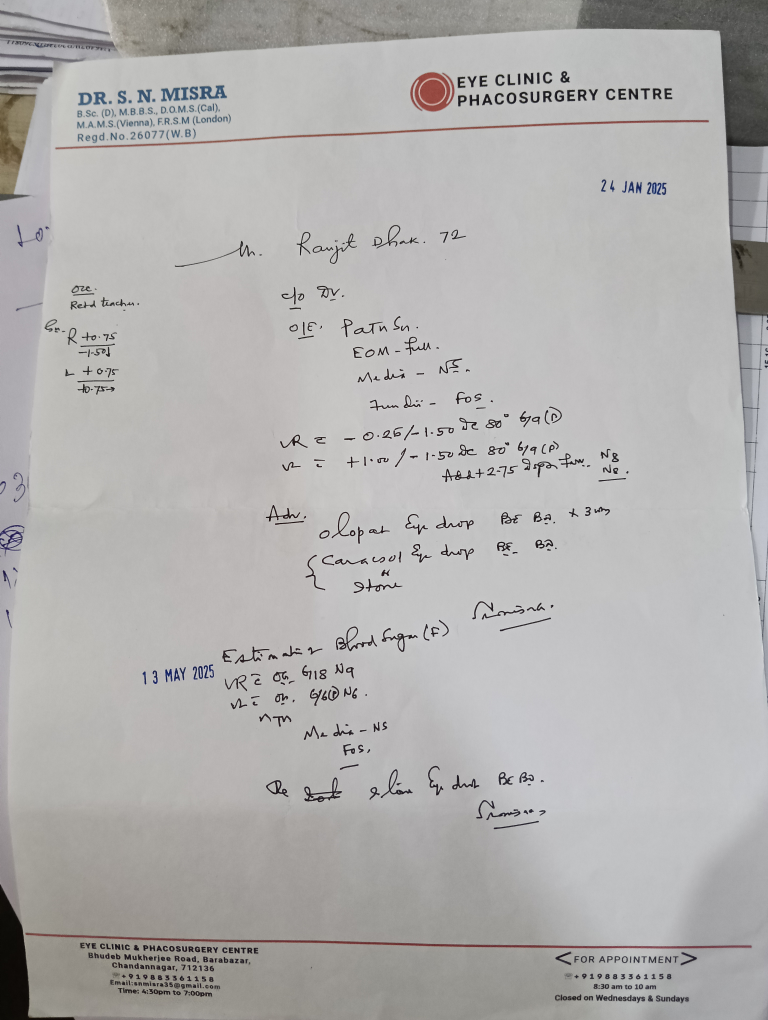 DR. S. N. MISRA
B.Sc. (D), M.B.B.S., D.O.M.S.(Cal),
M.A.M.S.(Vienna), F.R.S.M (London)
Regd.No.26077(W.B)
EYE CLINIC &
PHACOSURGERY CENTRE
24 JAN 2025
Ranjit Dhak. 72
Retd teacher.
R +0.75
-1.50
L +0.75
+0.75
c/o DV.
O/E.
EOM - Full.
Media - NS.
Fundii - FOS.
VR = - 0.25/-1.50 DC 80° 6/9(P)
VL = +1.00/-1.50 DC 80° 6/9(P)
Add +2.75 N8
N8.
Adv.
Olopat Eye drop BE BD. x 3
Eye drop BE BD.
Blood Sugar (F)
13 MAY 2025
VR = 6/18 N9
VL = 6/6(P) N6.
Media - NS
FOS.
Eye drop BE BD.
EYE CLINIC & PHACOSURGERY CENTRE
Bhudeb Mukherjee Road, Barabazar,
Chandannagar, 712136
+919883361158
Email:snmisra35@gmail.com
Time: 4:30pm to 7:00pm
FOR APPOINTMENT
+919883361158
8:30 am to 10 am
Closed on Wednesdays & Sundays